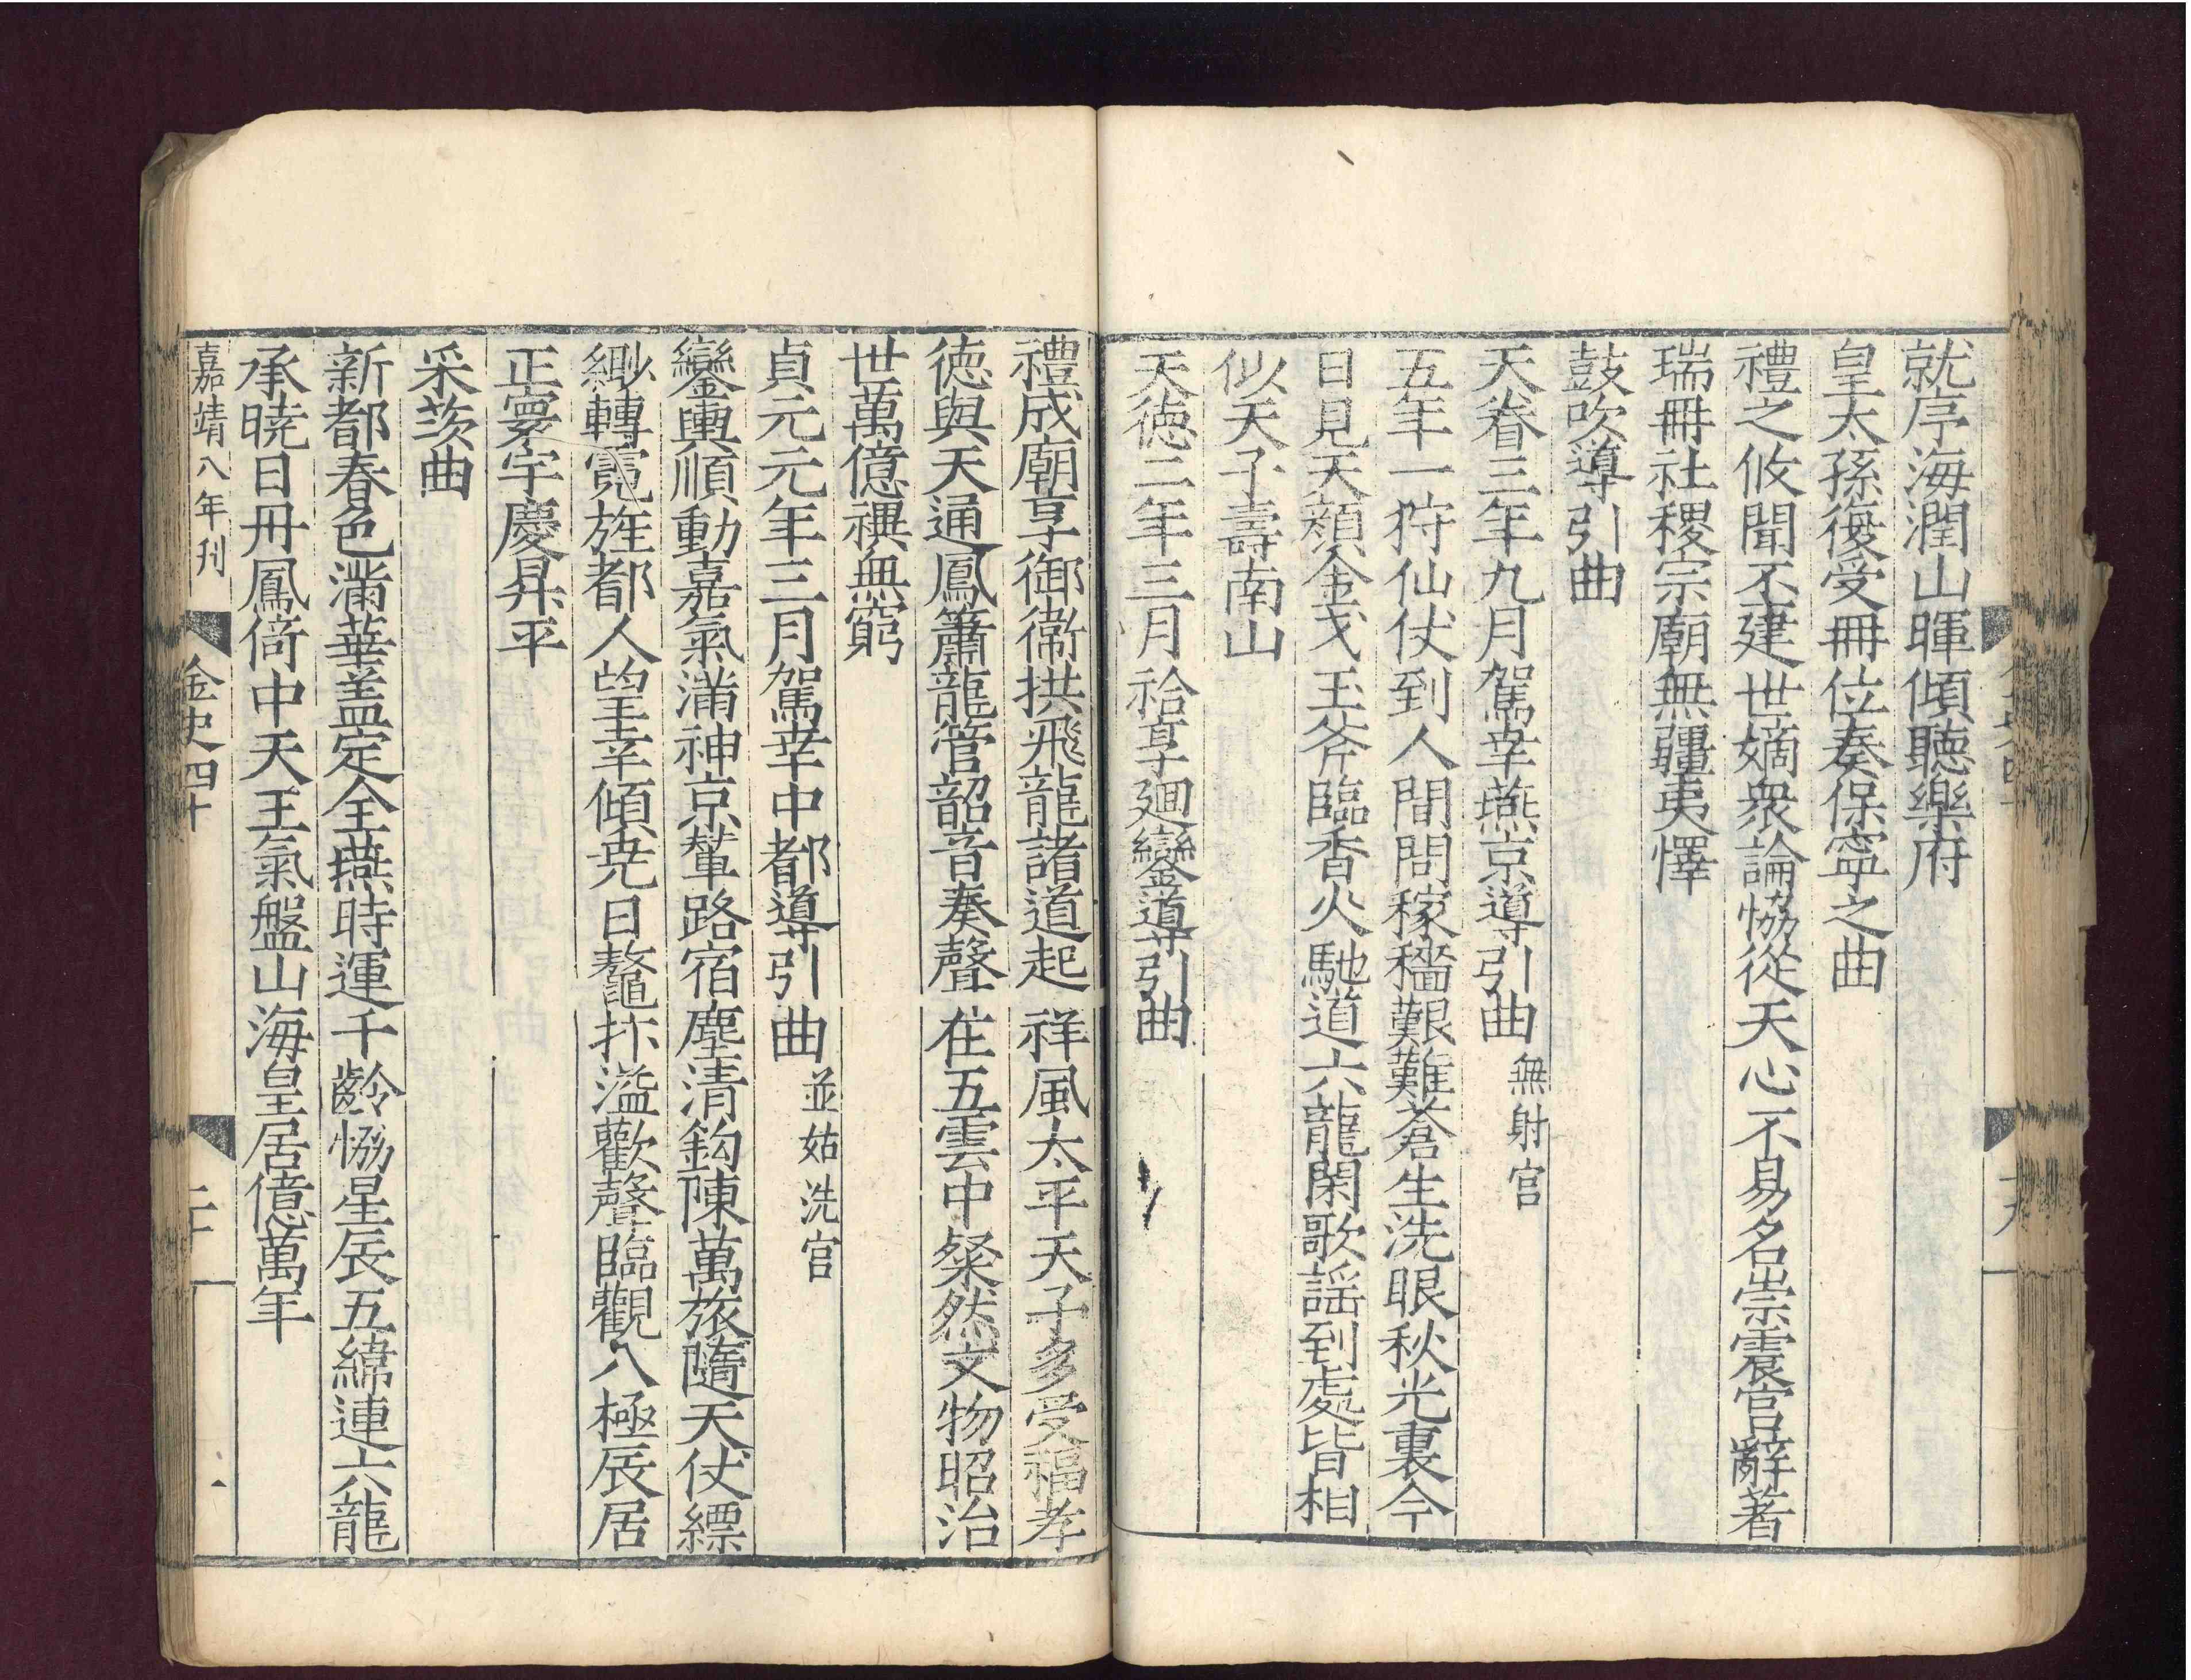 就序海潤山暉傾聽樂府
皇太孫復受冊位奏保寧之曲
禮之攸聞不建世嫡衆論恊從天心不易名崇震宫辭著
瑞冊社稷宗廟無疆夷懌
鼓吹導引曲
天眷三年九月駕幸燕京導引曲無射宫
五年一狩仙仗到人間問稼穡艱難蒼生洗眼秋光裏今
日見天顔金戈玉斧臨香火馳道六龍閑歌謡到處皆相
似天子壽南山
天德二年三月祫享廻鑾導引曲
禮成廟享御衞拱飛龍諸道起祥風太平天子多受福孝
德與天通鳳簫龍管韶音奏聲在五雲中粲然文物昭治
世萬億禩無窮
貞元元年三月駕幸中都導引曲並姑洗宫
鑾輿順動嘉氣滿神京輦路宿塵清鈎陳萬旅隨天仗縹
緲轉霓旌都人望幸傾尭日鰲抃溢歡聲臨觀八極辰居
正寰宇慶昇平
采茨曲
新都春色滿華盖定全燕時運千齡恊星辰五緯連六龍
承曉日丹鳳倚中天王氣盤山海皇居億萬年
嘉靖八年刊
金史四十
二十